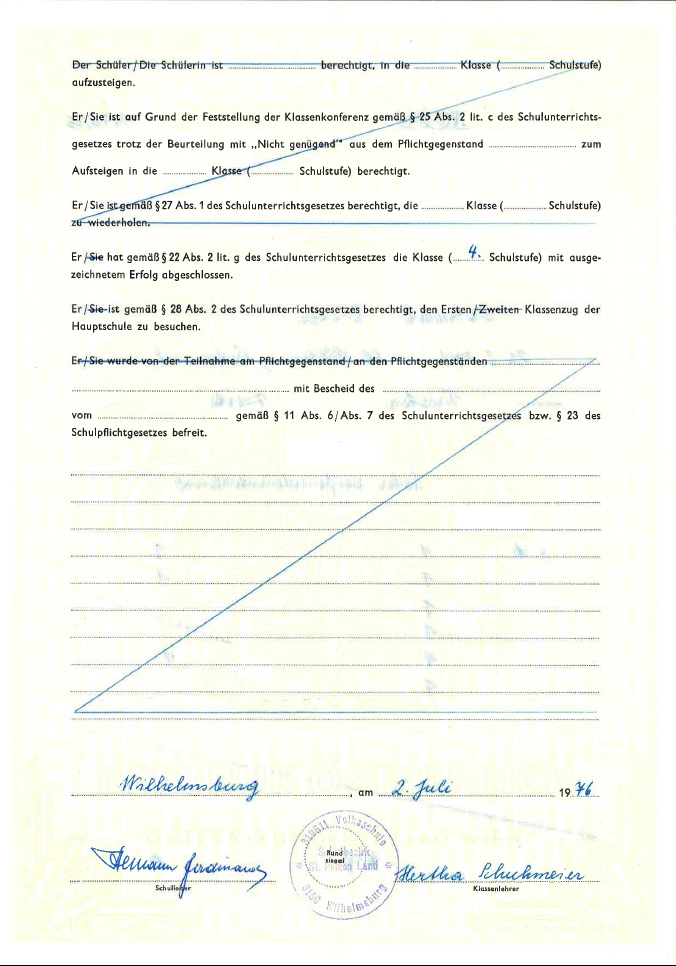 Der Schüler/Die Schülerin ist ........ berechtigt, in die ........ Klasse (........ Schulstufe)
aufzusteigen.
Er/Sie ist auf Grund der Feststellung der Klassenkonferenz gemäß § 25 Abs. 2 lit. c des Schulunterrichts-
gesetzes trotz der Beurteilung mit „Nicht genügend" aus dem Pflichtgegenstand ........ zum
Aufsteigen in die ........ Klasse (........ Schulstufe) berechtigt.
Er/Sie ist gemäß § 27 Abs. 1 des Schulunterrichtsgesetzes berechtigt, die ........ Klasse (........ Schulstufe)
zu wiederholen.
Er/Sie hat gemäß § 22 Abs. 2 lit. g des Schulunterrichtsgesetzes die Klasse (... 4. ... Schulstufe) mit ausge-
zeichnetem Erfolg abgeschlossen.
Er/Sie ist gemäß § 28 Abs. 2 des Schulunterrichtsgesetzes berechtigt, den Ersten/Zweiten Klassenzug der
Hauptschule zu besuchen.
Er/Sie wurde von der Teilnahme am Pflichtgegenstand/an den Pflichtgegenständen ........
........ mit Bescheid des ........
vom ........ gemäß § 11 Abs. 6/Abs. 7 des Schulunterrichtsgesetzes bzw. § 23 des
Schulpflichtgesetzes befreit.
Wilhelmsburg, am 2. Juli 1976
318611 Volksschule
Rund
siegel
St. Pölten Land
3150 Wilhelmsburg
Hemann Ferdinand
Hertha Schuchmeier
Schulleiter
Klassenlehrer